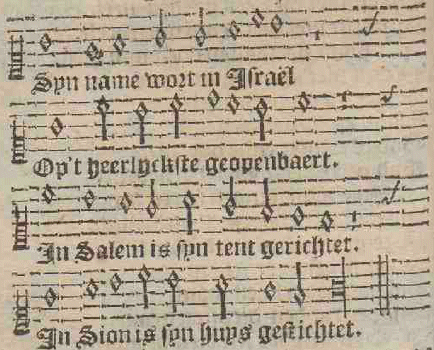 Syn name wort in Israël
Op't heerlyckste geopenbaert.
In Salem is syn tent gerichtet.
In Sion is syn huys gestichtet.